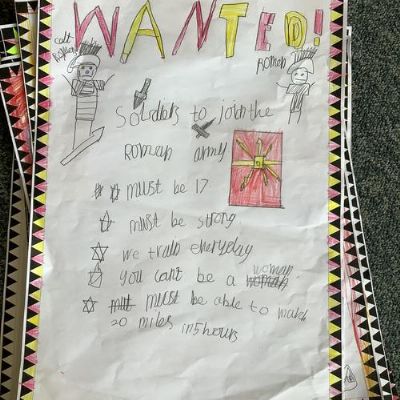 WANTED!
Roman
Soldiers to join the
Roman army
must be 17
must be strong
we train everyday
you cant be a woman
must be able to march
20 miles in 5 hours